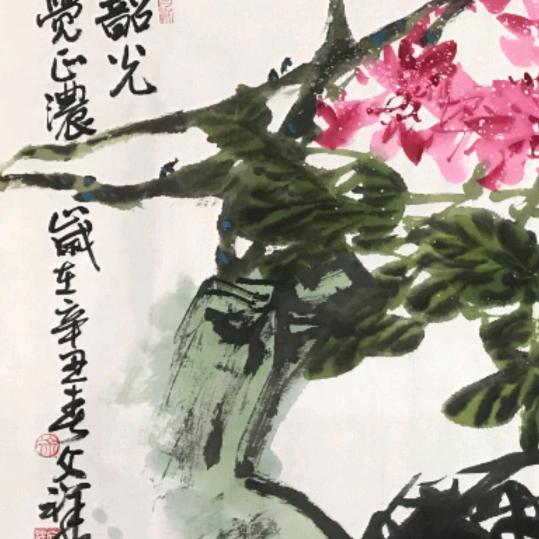 韶光
覺正濃
歲在辛丑春文祥